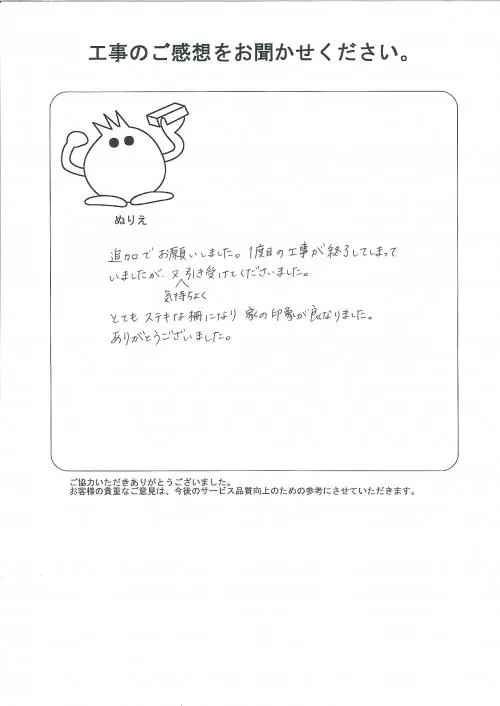 工事のご感想をお聞かせください。
ぬりえ
追加でお願いしました。1度目の工事が終了してしまって
いましたが、又引き受けてくださいました。
気持ちよく
とても ステキな柵になり 家の印象が良くなりました。
ありがとうございました。
ご協力いただきありがとうございました。
お客様の貴重なご意見は、今後のサービス品質向上のための参考にさせていただきます。